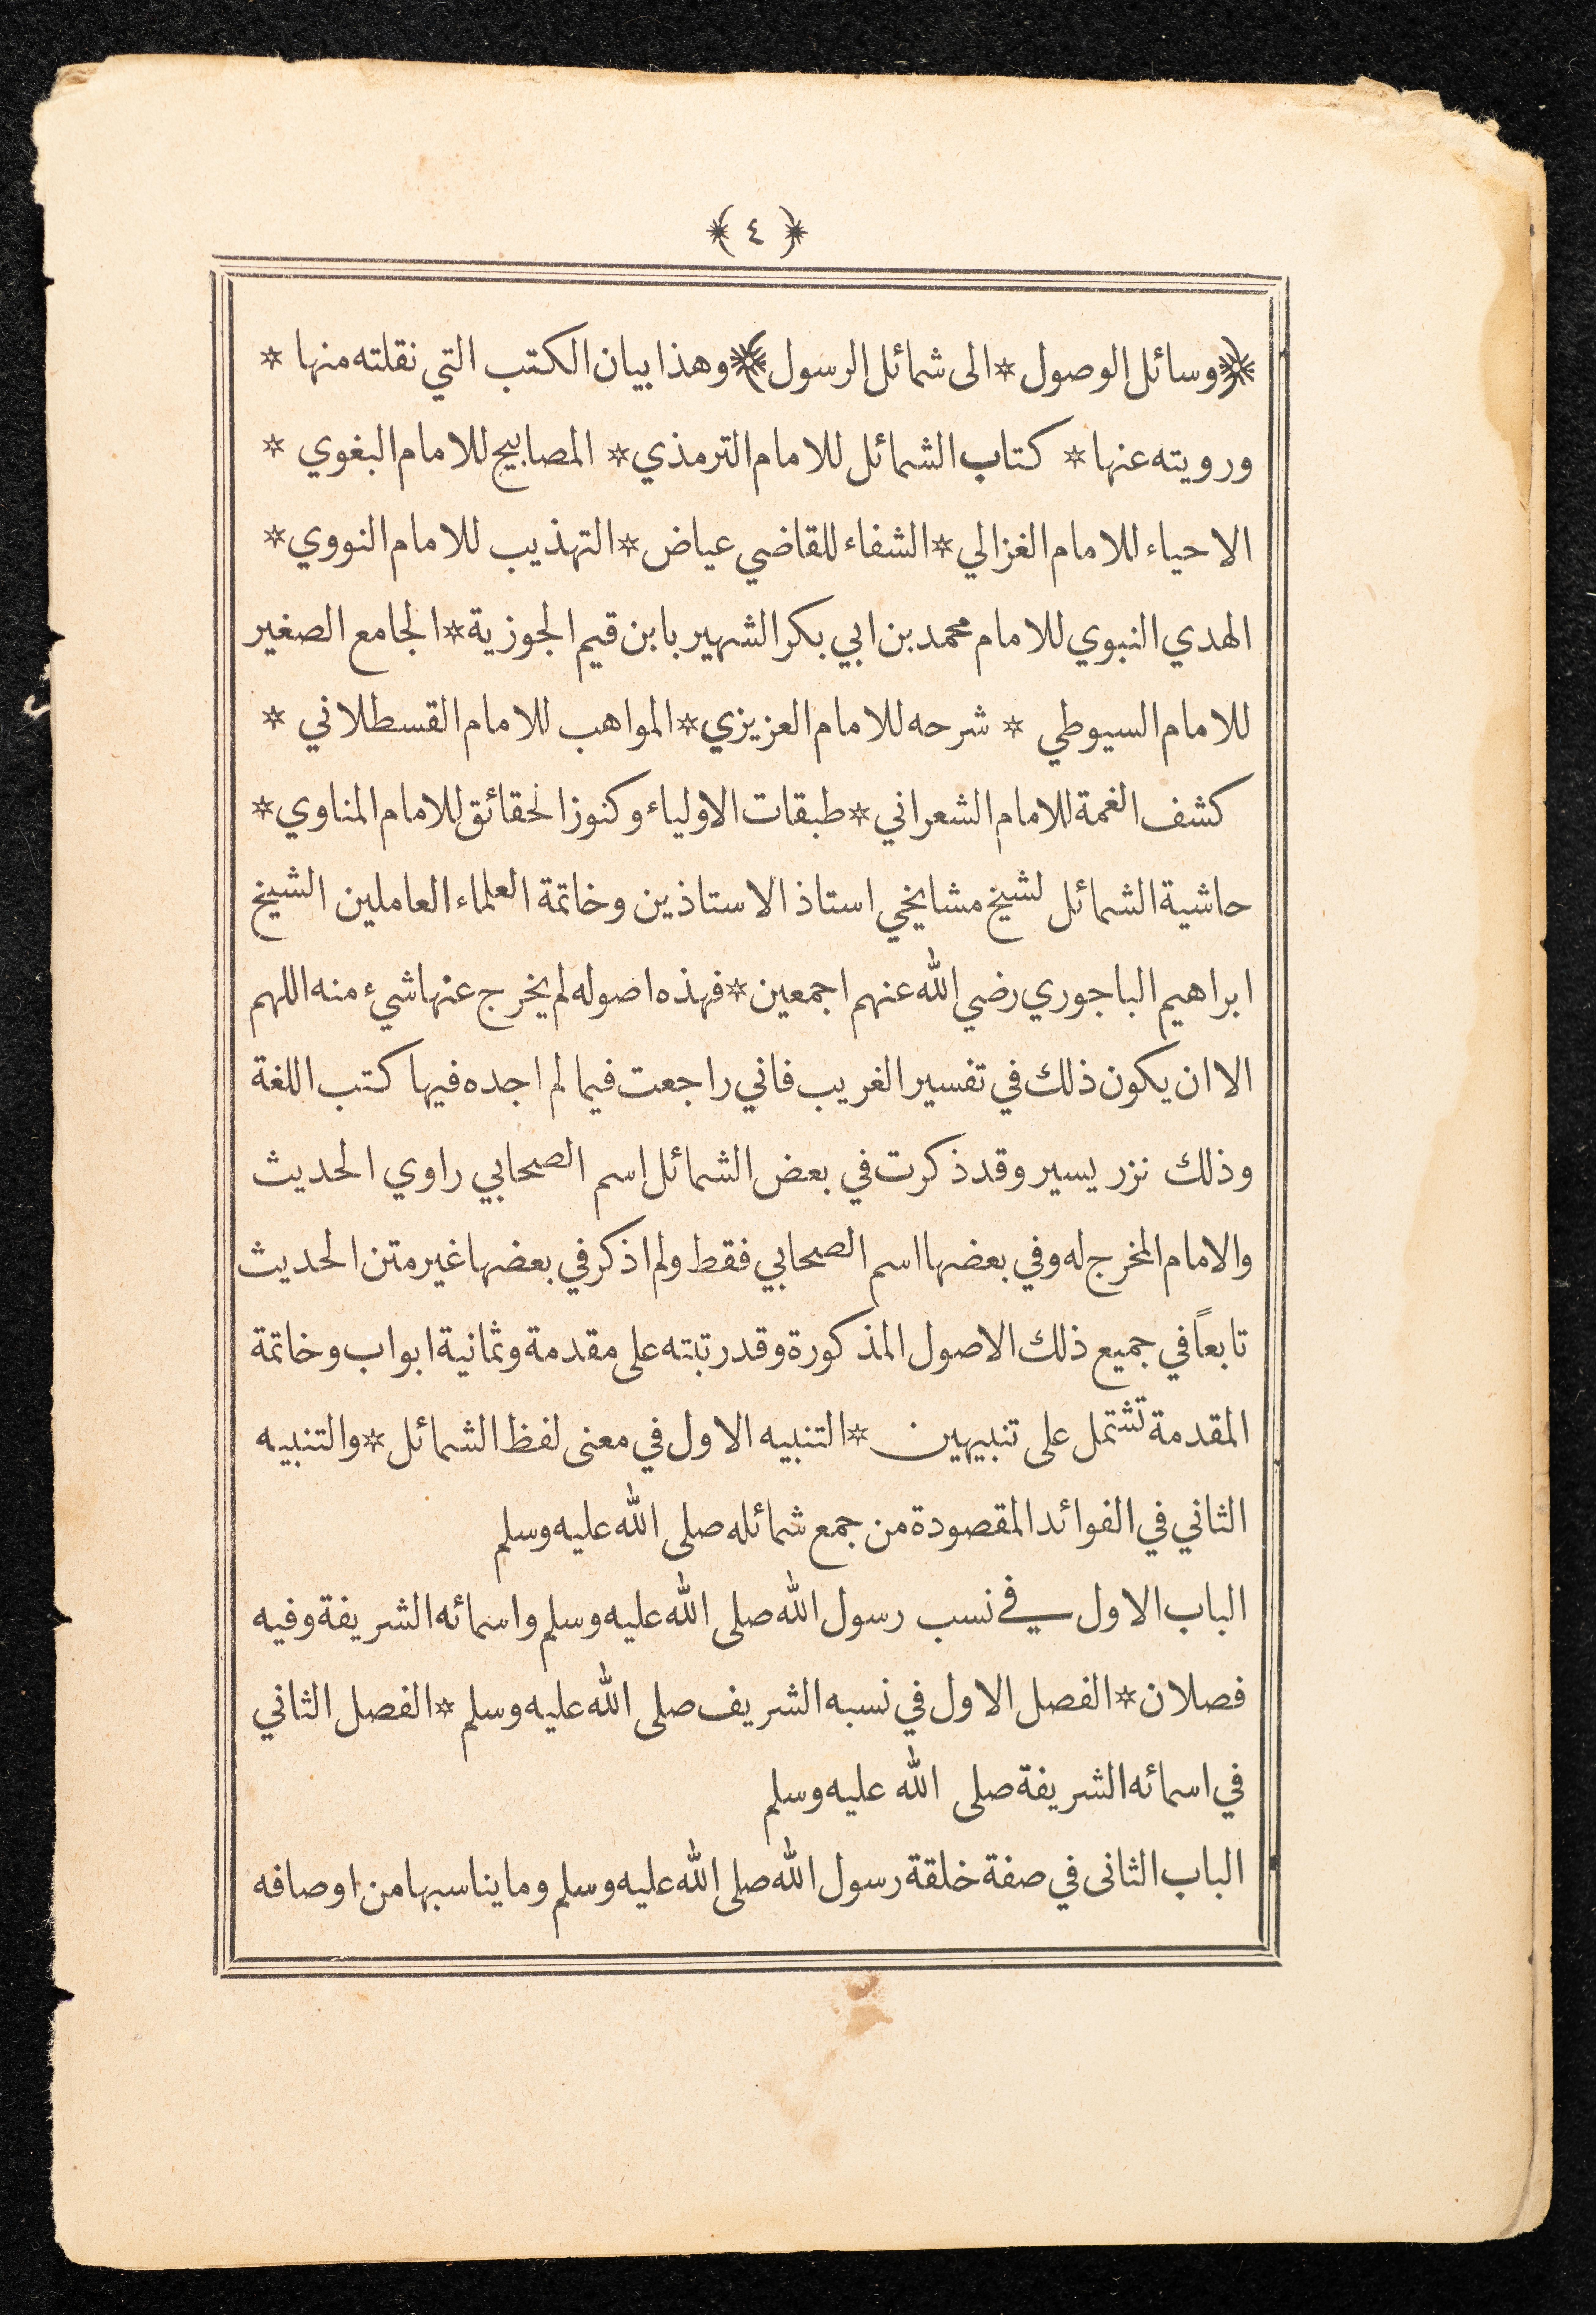 ﴿ ٤ ﴾
﴿ وسائل الوصول * الى شمائل الرسول ﴾ وهذا بيان الكتب التي نقلته منها *
ورويته عنها * كتاب الشمائل للامام الترمذي * المصابيح للامام البغوي *
الاحياء للامام الغزالي * الشفاء للقاضي عياض * التهذيب للامام النووي *
الهدي النبوي للامام محمد بن ابي بكر الشهير بابن قيم الجوزية * الجامع الصغير
للامام السيوطي * شرحه للامام العزيزي * المواهب للامام القسطلاني *
كشف الغمة للامام الشعراني * طبقات الاولياء وكنوز الحقائق للامام المناوي *
حاشية الشمائل لشيخ مشايخي استاذ الاستاذين وخاتمة العلماء العاملين الشيخ
ابراهيم الباجوري رضي الله عنهم اجمعين * فهذه اصوله لم يخرج عنها شيء منه اللهم
الا ان يكون ذلك في تفسير الغريب فاني راجعت فيما لم اجده فيها كتب اللغة
وذلك نزر يسير وقد ذكرت في بعض الشمائل اسم الصحابي راوي الحديث
والامام المخرج له وفي بعضها اسم الصحابي فقط ولم اذكر في بعضها غير متن الحديث
تابعاً في جميع ذلك الاصول المذكورة وقد رتبته على مقدمة وثمانية ابواب وخاتمة
المقدمة تشتمل على تنبيهين * التنبيه الاول في معنى لفظ الشمائل * والتنبيه
الثاني في الفوائد المقصودة من جمع شمائله صلى الله عليه وسلم
الباب الاول في نسب رسول الله صلى الله عليه وسلم واسمائه الشريفة وفيه
فصلان * الفصل الاول في نسبه الشريف صلى الله عليه وسلم * الفصل الثاني
في اسمائه الشريفة صلى الله عليه وسلم
الباب الثانى في صفة خلقة رسول الله صلى الله عليه وسلم وما يناسبها من اوصافه